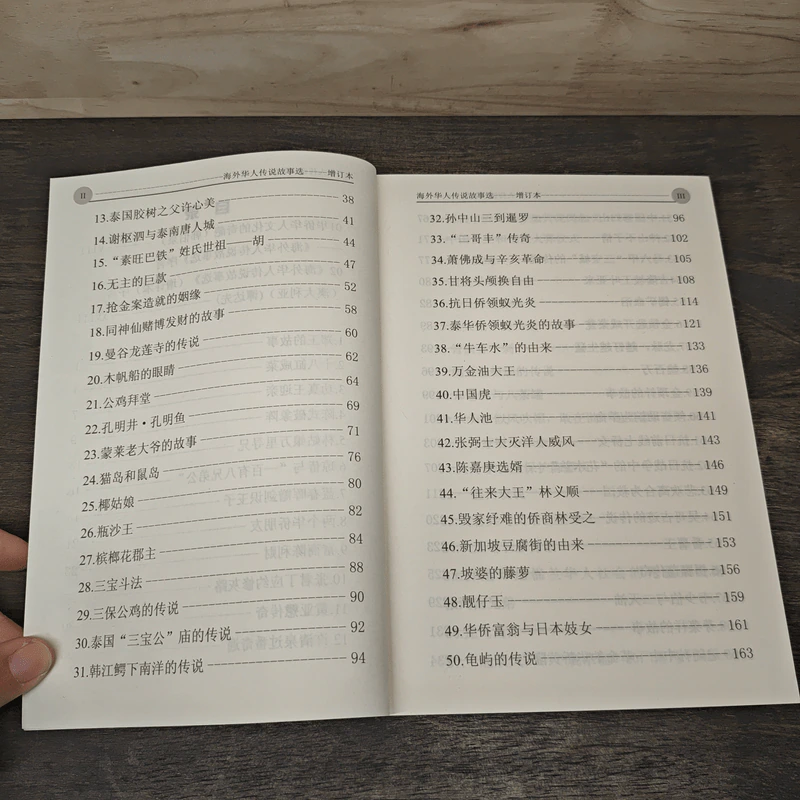 II 海外华人传说故事选——增订本
13.泰国胶树之父许心美 38
14.谢枢泗与泰南唐人城 41
15.“素旺巴铁”姓氏世祖——胡 44
16.无主的巨款 47
17.抢金案造就的姻缘 52
18.同神仙赌博发财的故事 58
19.曼谷龙莲寺的传说 60
20.木帆船的眼睛 62
21.公鸡拜堂 64
22.孔明井·孔明鱼 69
23.蒙莱老大爷的故事 71
24.猫岛和鼠岛 76
25.椰姑娘 80
26.瓶沙王 82
27.槟榔花郡主 84
28.三宝斗法 88
29.三保公鸡的传说 90
30.泰国“三宝公”庙的传说 92
31.韩江鳄下南洋的传说 94
海外华人传说故事选——增订本 III
32.孙中山三到暹罗 96
33.“二哥丰”传奇 102
34.萧佛成与辛亥革命 105
35.甘将头颅换自由 108
36.抗日侨领蚁光炎 114
37.泰华侨领蚁光炎的故事 121
38.“牛车水”的由来 133
39.万金油大王 136
40.中国虎 139
41.华人池 141
42.张弼士大灭洋人威风 143
43.陈嘉庚选婿 146
44.“往来大王”林义顺 149
45.毁家纾难的侨商林受之 151
46.新加坡豆腐街的由来 153
47.坡婆的藤萝 156
48.靓仔玉 159
49.华侨富翁与日本妓女 161
50.龟屿的传说 163